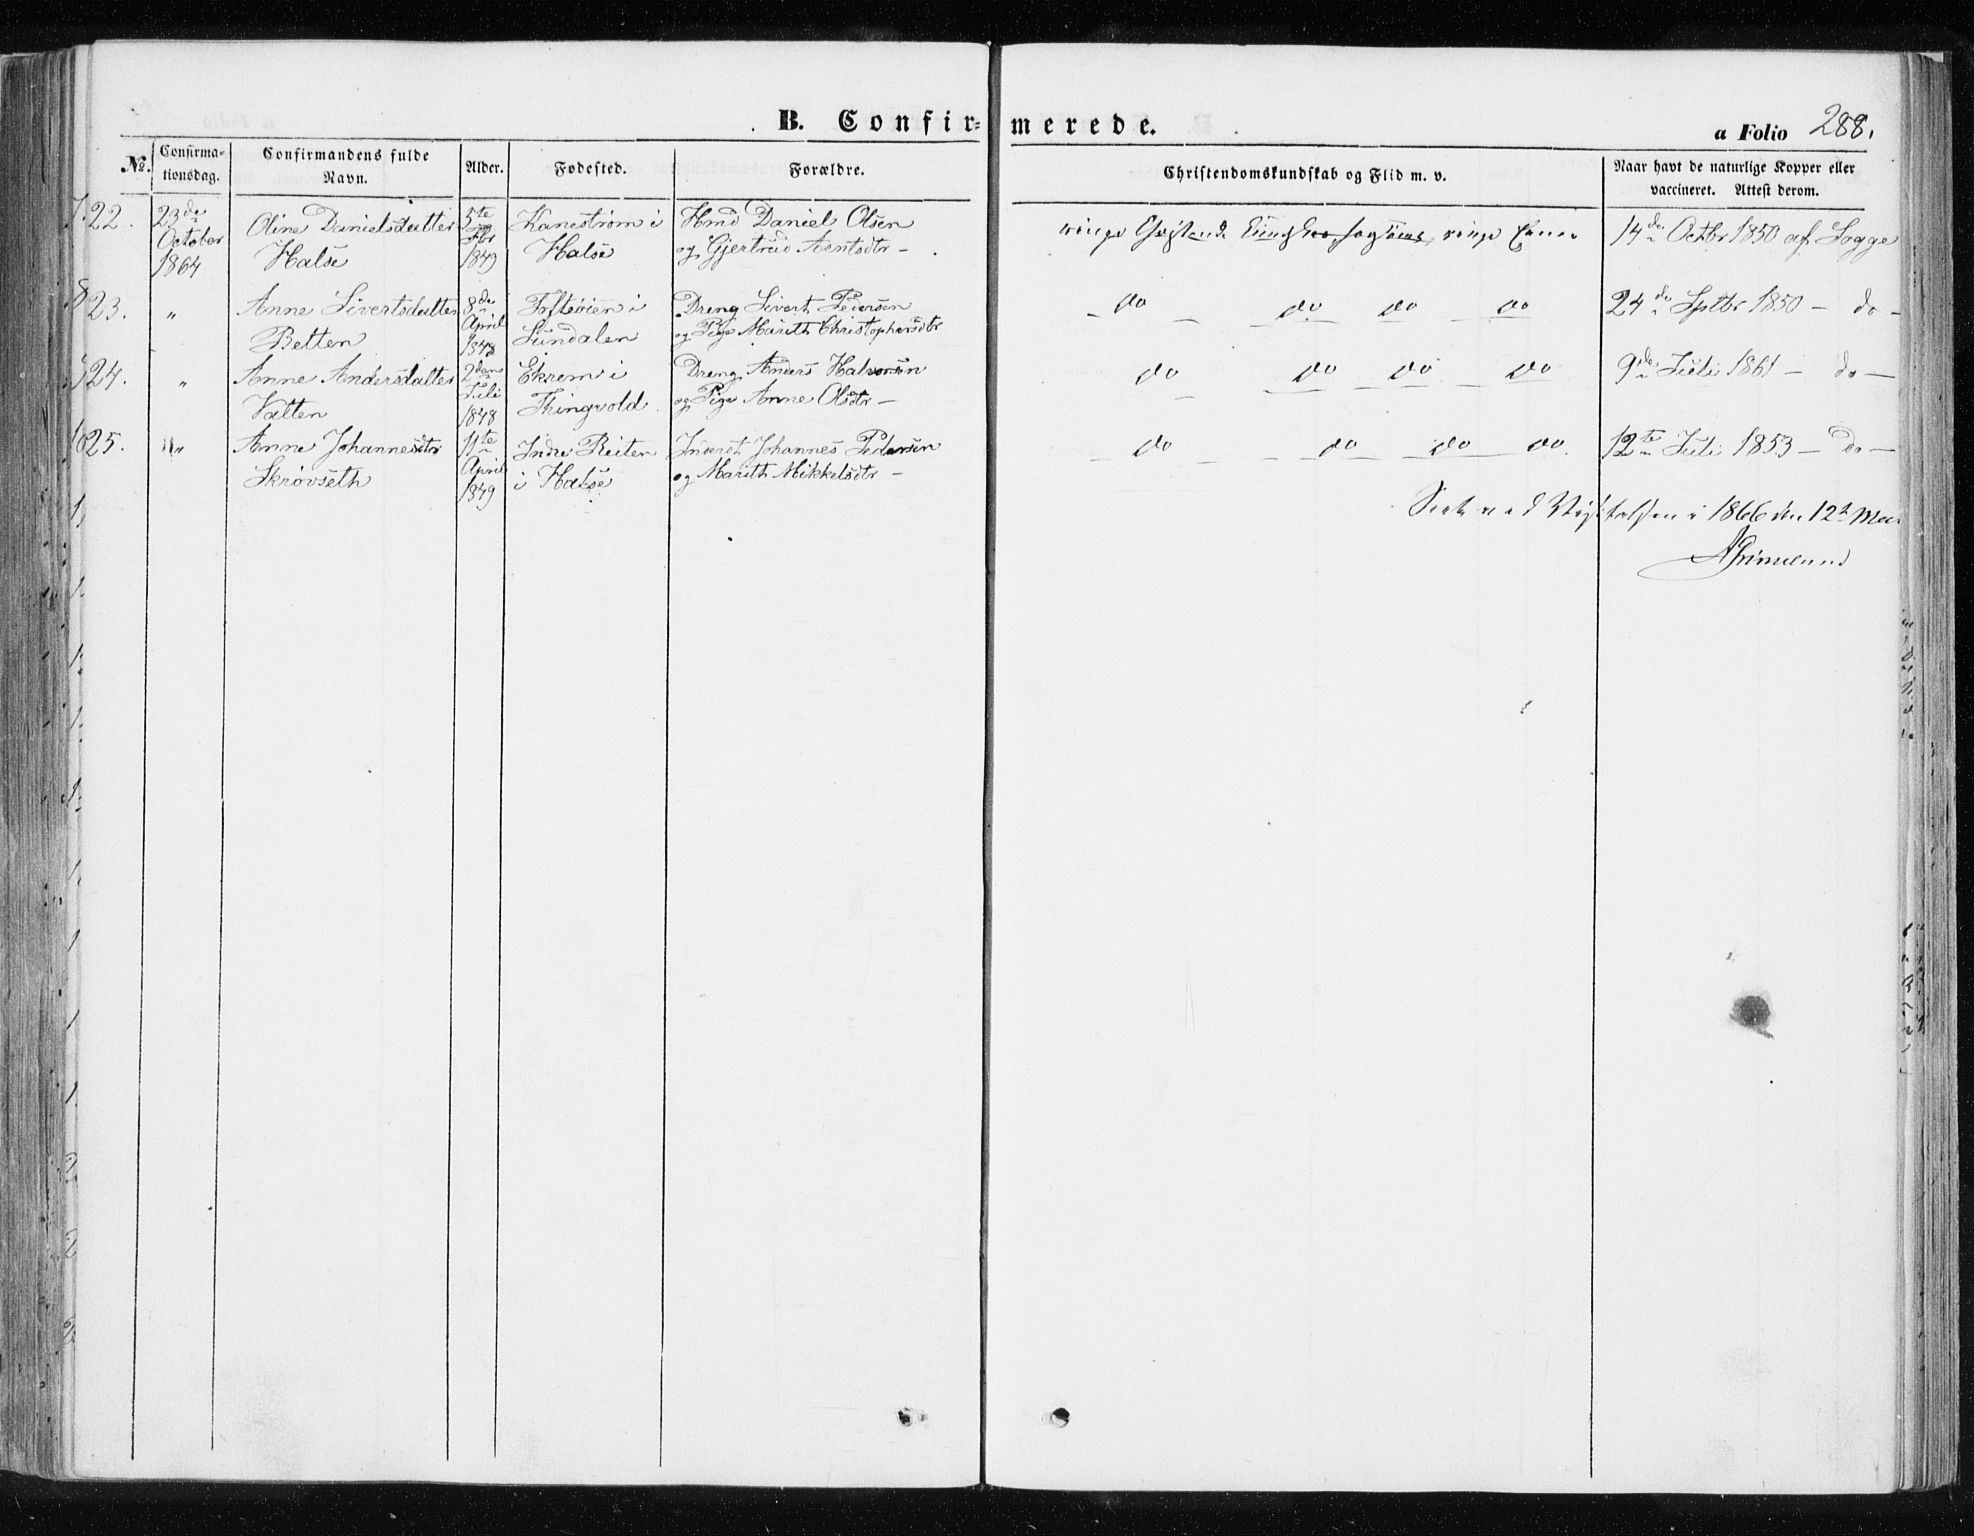 B. Confirmerede.
a Folio 288.
No. Confirmationsdag. Confirmandens fulde Navn. Alder. Fødested. Forældre. Christendomskundskab og Flid m. v. Naar havt de naturlige Kopper eller vaccineret. Attest derom.
22. 23de Oline Danielsdatter 5te Kanestrøm i Hmd Daniel Olsen 14de Octbr 1850 af Logge
October Halse 1849 Halse og Gjertrud Arntsdtr —
1864
23. " Anne Sivertsdatter 8de Toftøien i Dreng Sivert Pedersen do do do do 24de Sptbr 1850 — do —
Betten April 1848 Sundalen og Pige Marith Christophersdtr
24. " Anne Andersdatter 2den Ekrem i Dreng Anders Halvorsen do do do do 9de Juli 1861 — do —
Valten Juli 1848 Thingvold og Pige Anne Olsdtr —
25. " Anne Johannesdtr 11te Indre Reiten Inderst Johannes Pedersen do do do do 12te Juli 1853 — do —
Skrøvseth April 1849 i Halse og Marith Mikkelsdtr —
Seet ved Visitatsen i 1866 den 12te
Grimelund